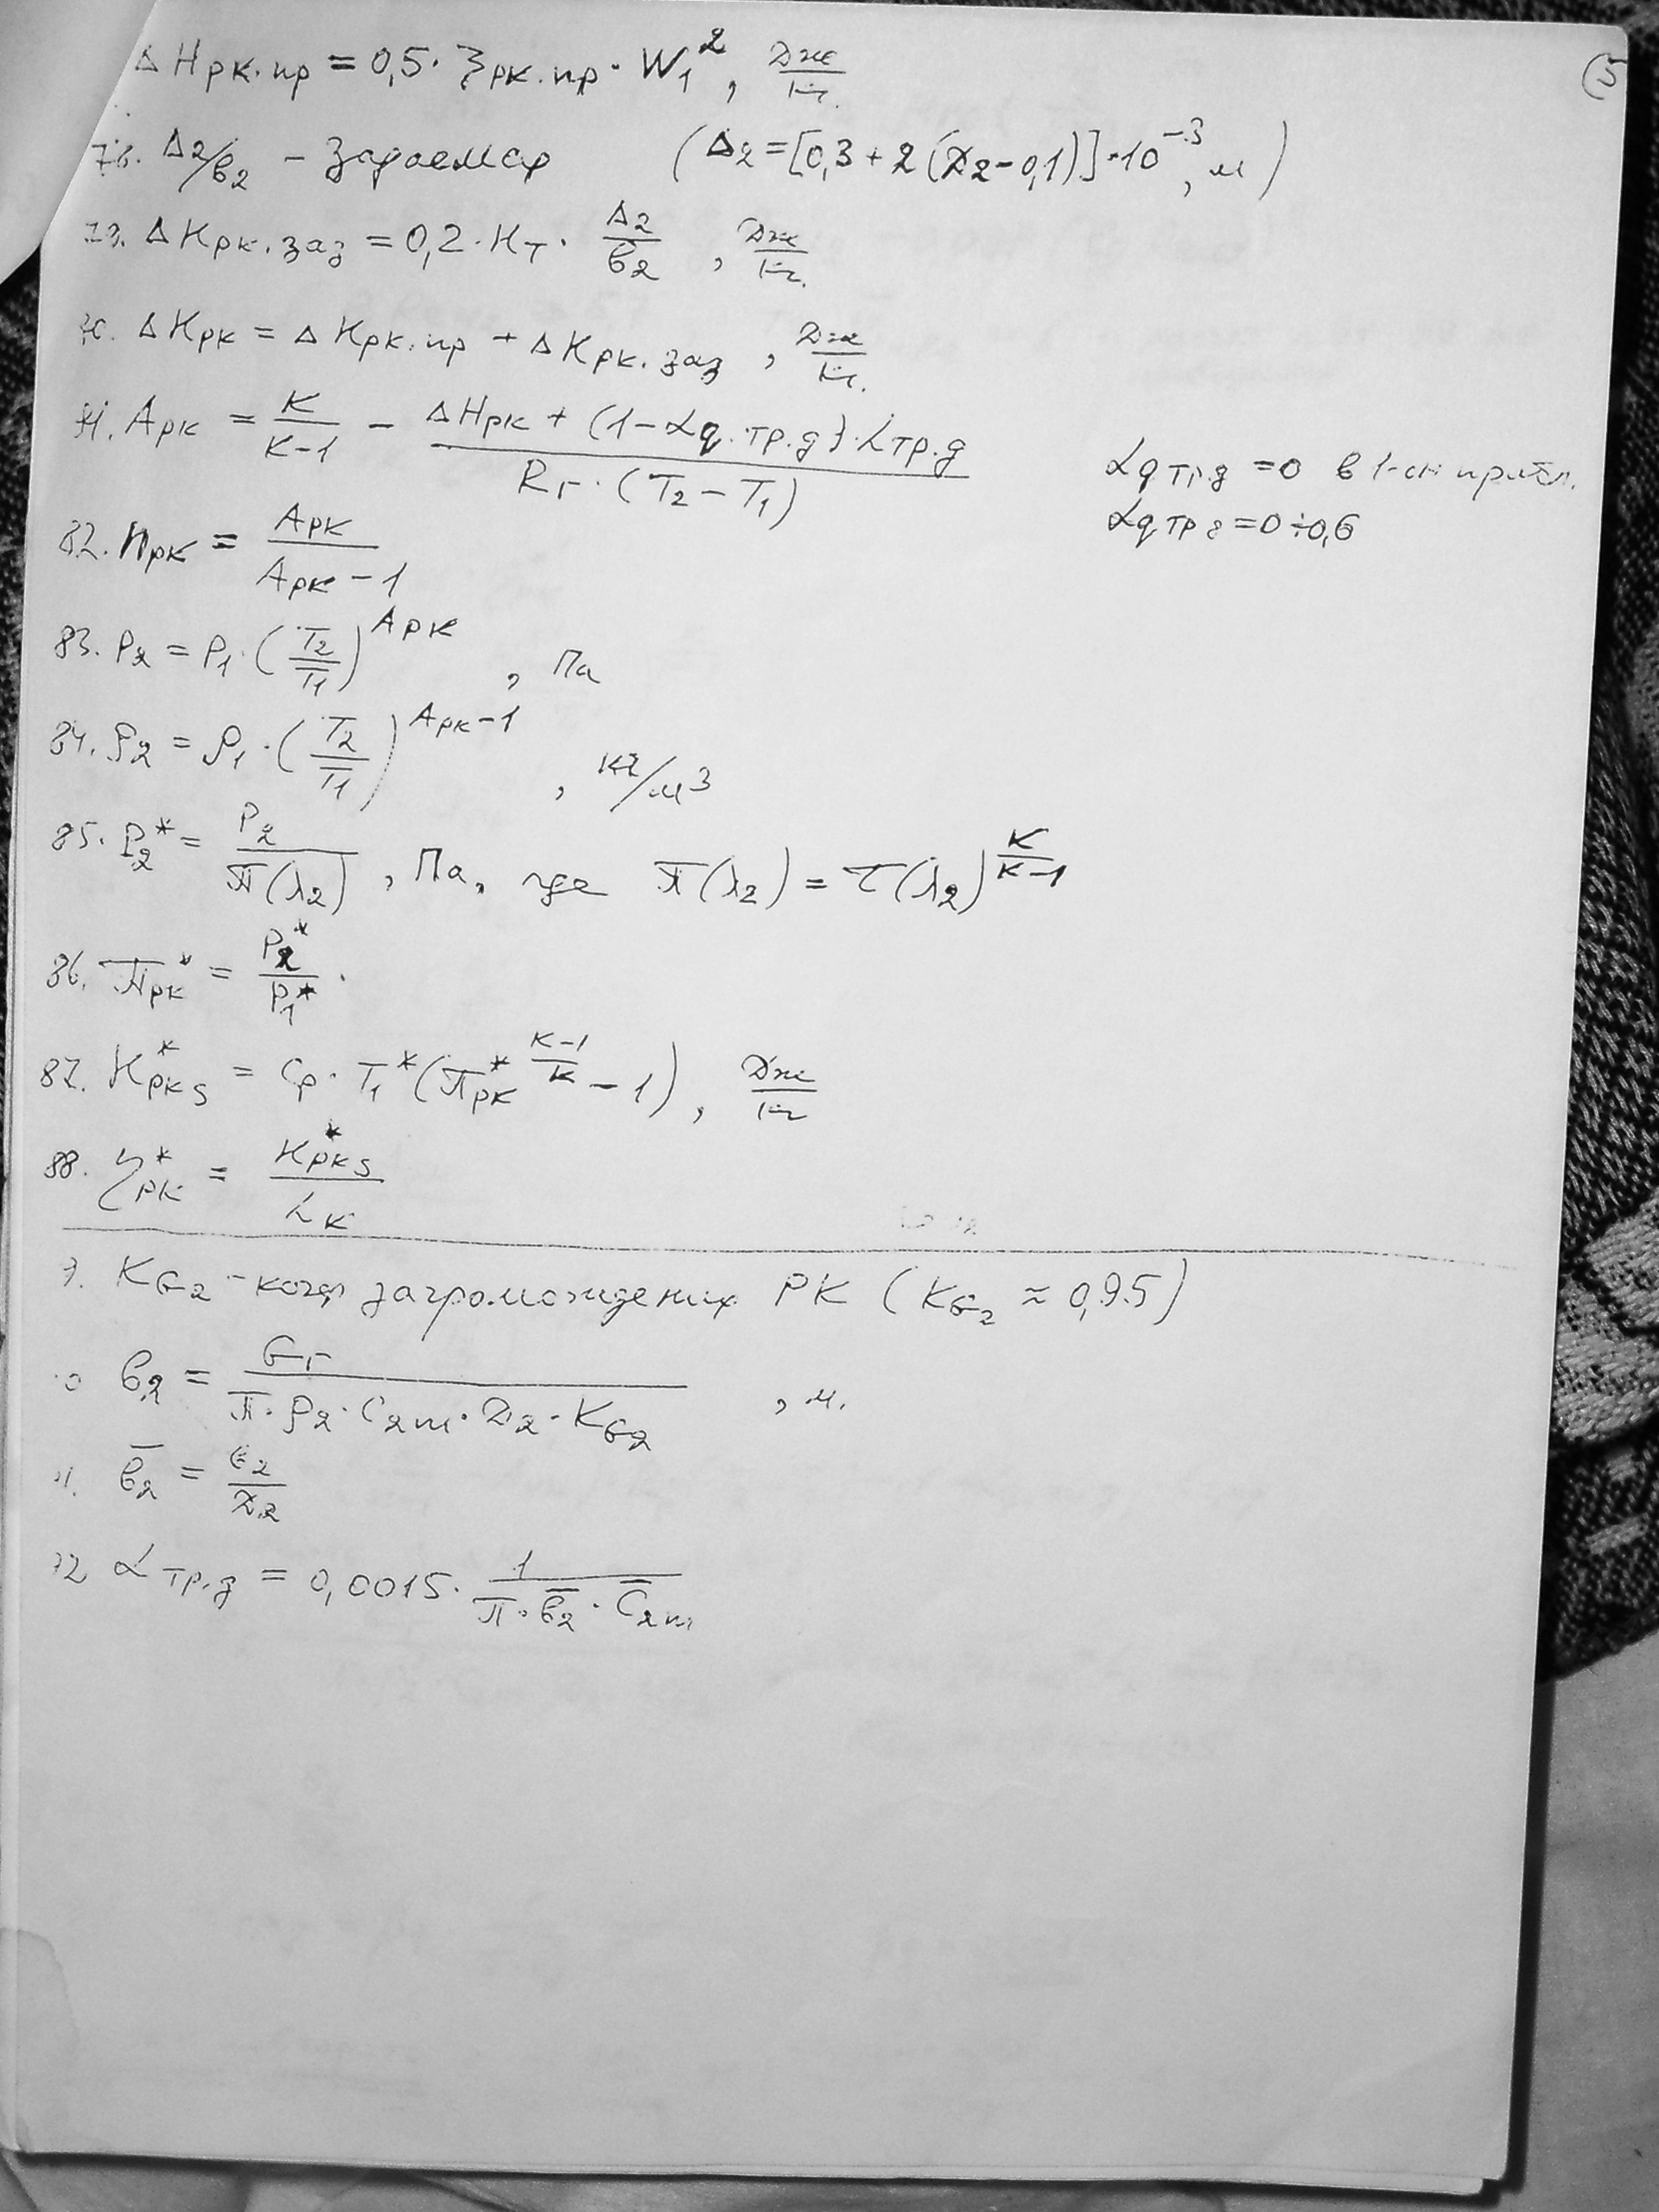 5
ΔHрк.пр = 0,5 · ζрк.пр · W₁², Дж/кг
78. Δ₂/b₂ – задаемся (Δ₂ = [0,3 + 2(D₂ – 0,1)] · 10⁻³, м)
79. ΔHрк.заз = 0,2 · Hт · Δ₂/b₂, Дж/кг
80. ΔHрк = ΔHрк.пр + ΔHрк.заз, Дж/кг
81. Aрк = K/(K–1) – (ΔHрк + (1 – αq.тр.д) · Lтр.д)/(Rг · (T₂ – T₁))
αq тр.д = 0 в 1-ом прибл.
αq тр д = 0 ÷ 0,6
82. nрк = Aрк/(Aрк – 1)
83. P₂ = P₁ · (T₂/T₁)^Aрк, Па
84. ρ₂ = ρ₁ · (T₂/T₁)^(Aрк–1), кг/м³
85. P₂* = P₂/π(λ₂), Па, где π(λ₂) = τ(λ₂)^(K/(K–1))
86. πрк* = P₂*/P₁*
87. Hркs* = Cp · T₁* (πрк*^((K–1)/K) – 1), Дж/кг
88. ηрк* = Hркs*/Lк
KG₂ – коэф загромождения РК (KG₂ ≈ 0,95)
b₂ = Gг/(π · ρ₂ · C₂m · D₂ · KG₂), м.
b̄₂ = b₂/D₂
αтр.д = 0,0015 · 1/(π · b̄₂ · C̄₂m)